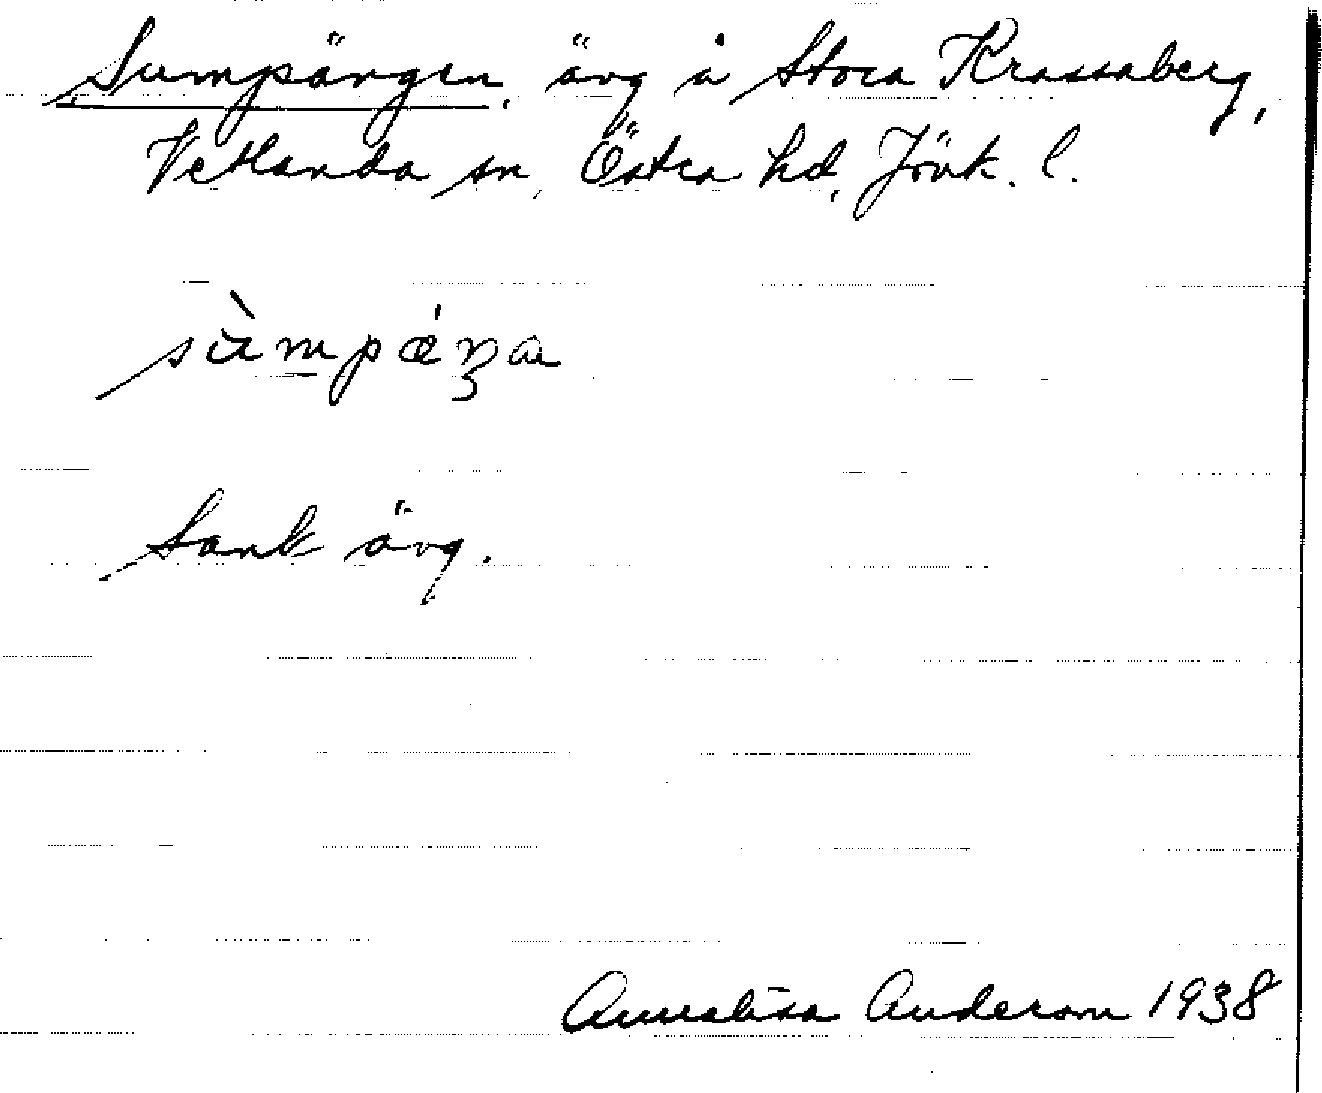 Sumpängen, äng å Stora Krassaberg,
Vetlanda sn, Östra hd, Jönk. l.
sùmpǽŋa
Sank äng.
Annalisa Anderson 1938